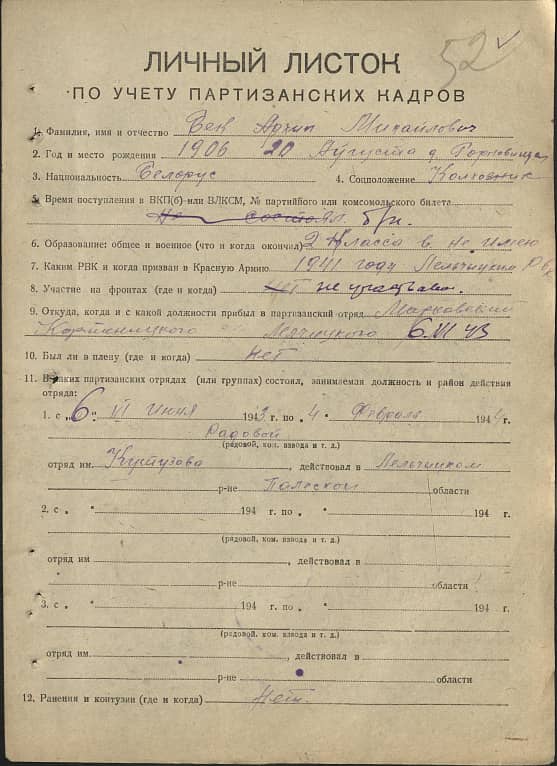 52
ЛИЧНЫЙ ЛИСТОК
ПО УЧЕТУ ПАРТИЗАНСКИХ КАДРОВ
1. Фамилия, имя и отчество Бек Архип Михайлович
2. Год и место рождения 1906 20 Августа д.
3. Национальность Белорус 4. Соцположение Колховник
5. Время поступления в ВКП(б) или ВЛКСМ, № партийного или комсомольского билета
Не б/п.
6. Образование: общее и военное (что и когда окончил) 2 Класса в. не имею
7. Каким РВК и когда призван в Красную Армию 1941 году Лельчицким
8. Участие на фронтах (где и когда) нет не участвовал.
9. Откуда, когда и с какой должности прибыл в партизанский отряд
6.VI 43
10. Был ли в плену (где и когда) Нет
11. В каких партизанских отрядах (или группах) состоял, занимаемая должность и район действия
отряда:
1. с „6" VI Июня 1943 г. по „4" Февраля 1944 г.
Радовой
(рядовой, ком. взвода и т. д.)
отряд им. Кутузова, действовал в Лельчицком
р-не Палеской области
2. с „ " 194 г. по „ " 194 г.
(рядовой, ком. взвода и т. д.)
отряд им , действовал в
р-не области
3. с „ " 194 г. по „ " 194 г.
(рядовой, ком. взвода и т. д.)
отряд им. , действовал в
р-не области
12. Ранения и контузии (где и когда) Нет.